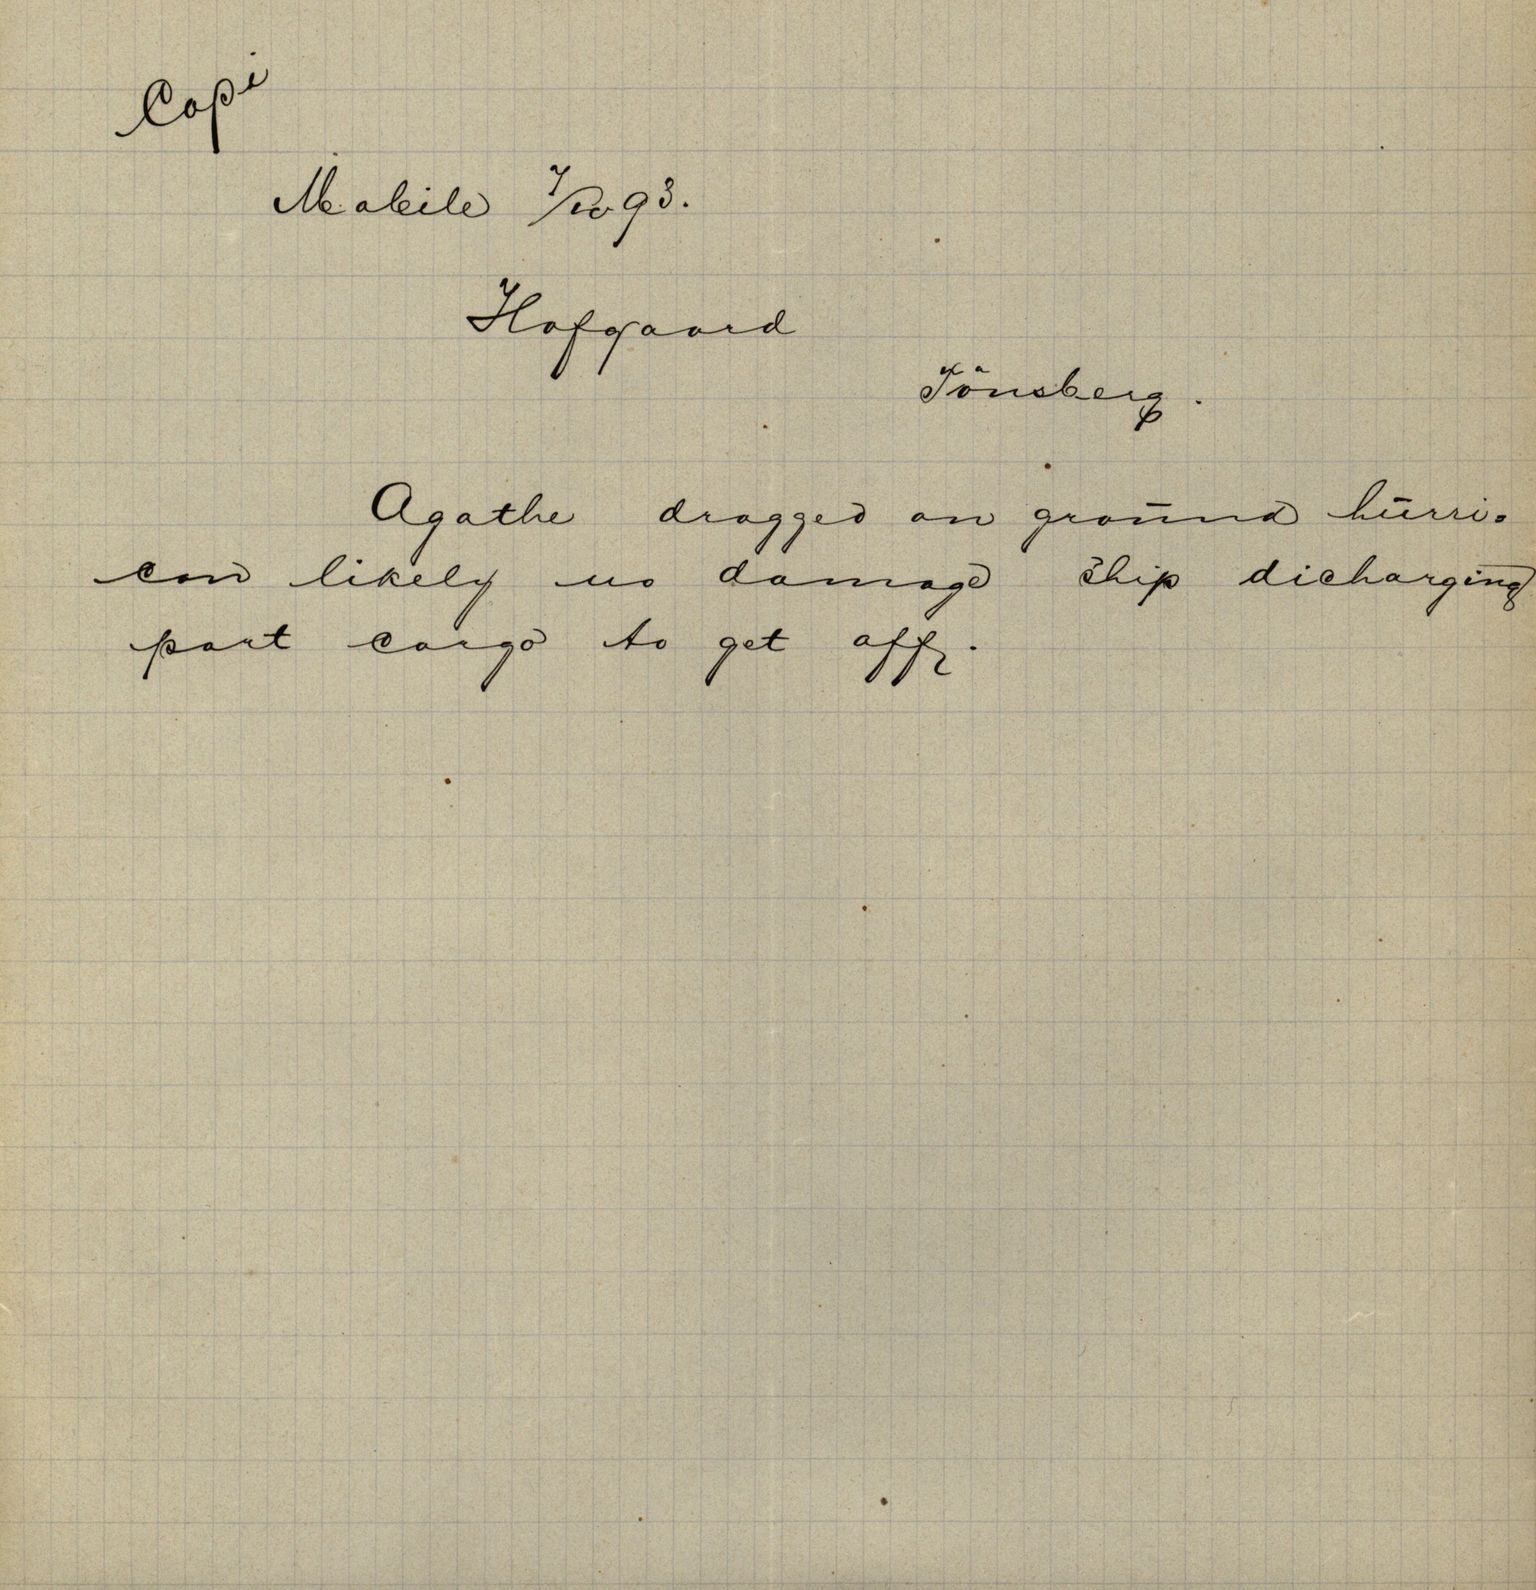 Copi
Mobile 7/10 93.
Hofgaard
Tönsberg.
Agathe dragged on ground hurri-
can likely no damage ship dicharging
part cargo to get off.